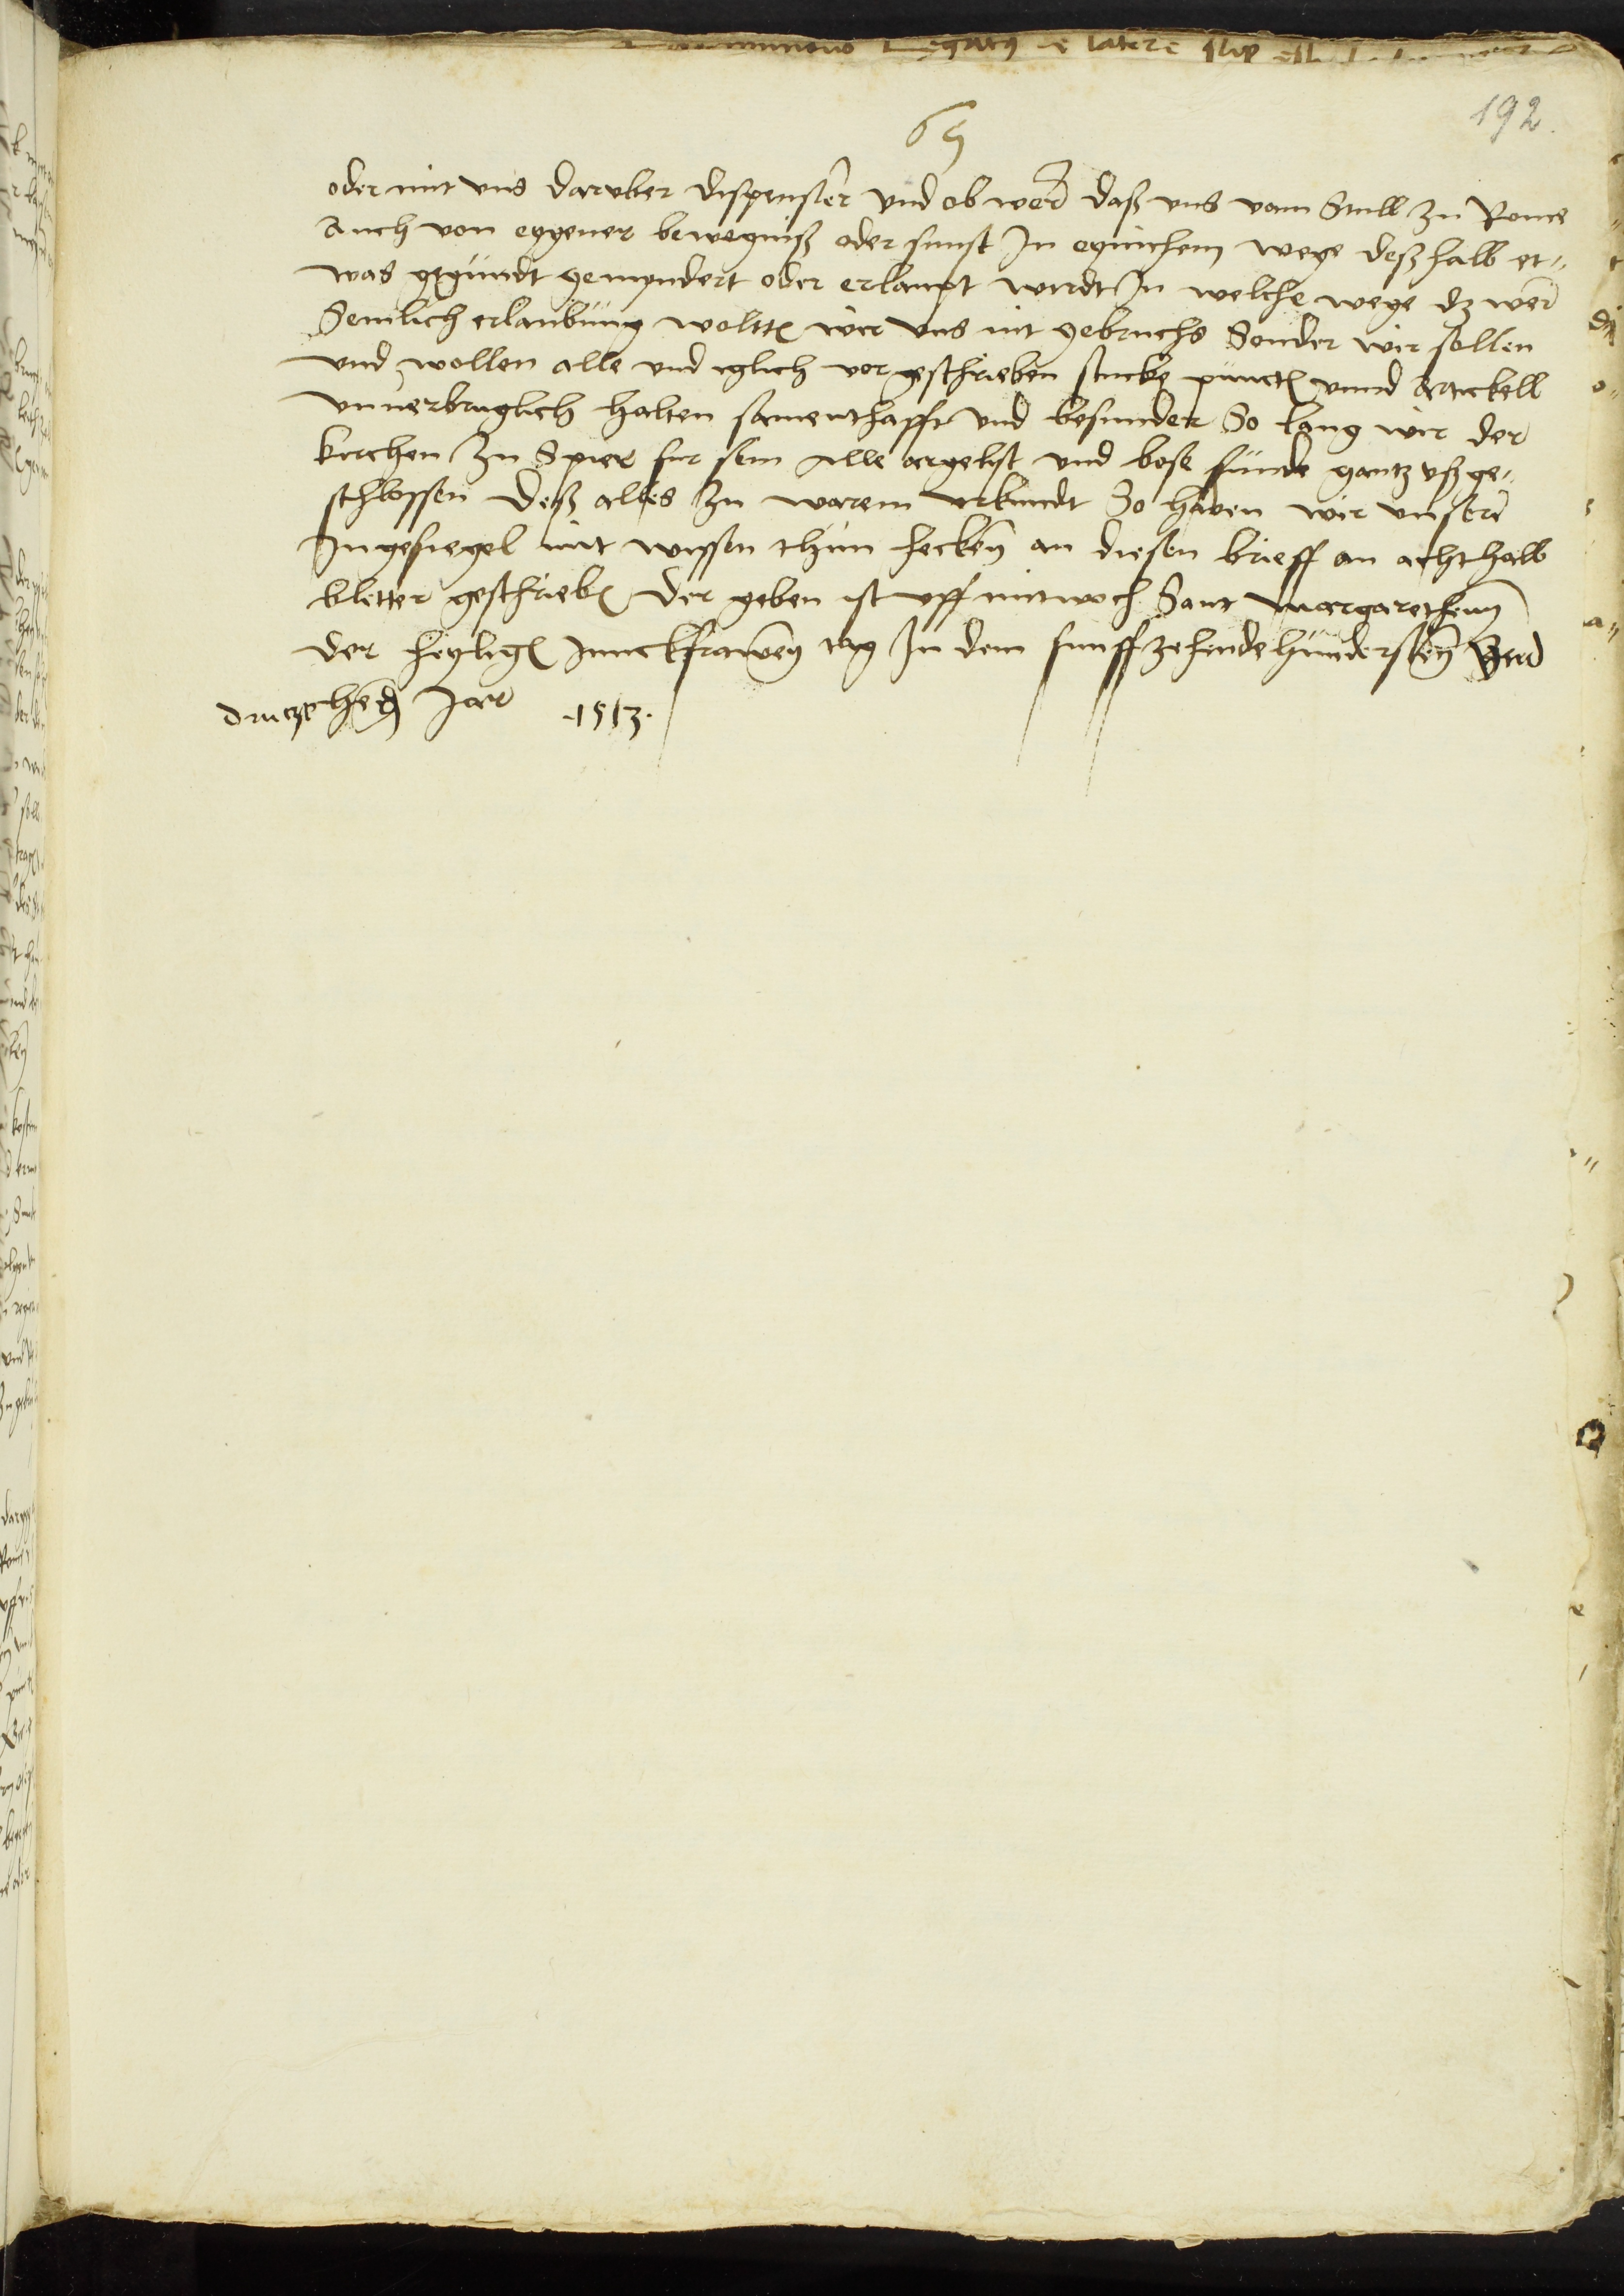 192.
65
oder mit vns daruber dispensier vnd ob wer daß vns vom Stull zu Rome
Auch von eygener bewegniß oder sunst In eynichem wege deßhalb et-
was gegundt gemyndert oder erlaupt wurdt In welche wege dz wer
Semlich erlaubung woltten wir vns nit gebruchs Sonder wir sollen
vnd wollen alle vnd iglich vorgeschrieben stucke puncten vnnd Artickell
vnuerbruglich halten samenthafft vnd besunder So lang wir der
kirchen zu Spier fur sein Alle argelist vnd bose funde gantz vßge-
schlossen Deß alles zu warem vrkundt So haben wir vnsere
Ingesiegel mit wissen thun hecken an diesen brieff an achthalb
bletter geschrieben Der geben ist vff mitwoch Sant Margarethenn
der heyligen Junckfrawen tag In dem funffzehendehundersten vnd
druzehen Jar 1513.